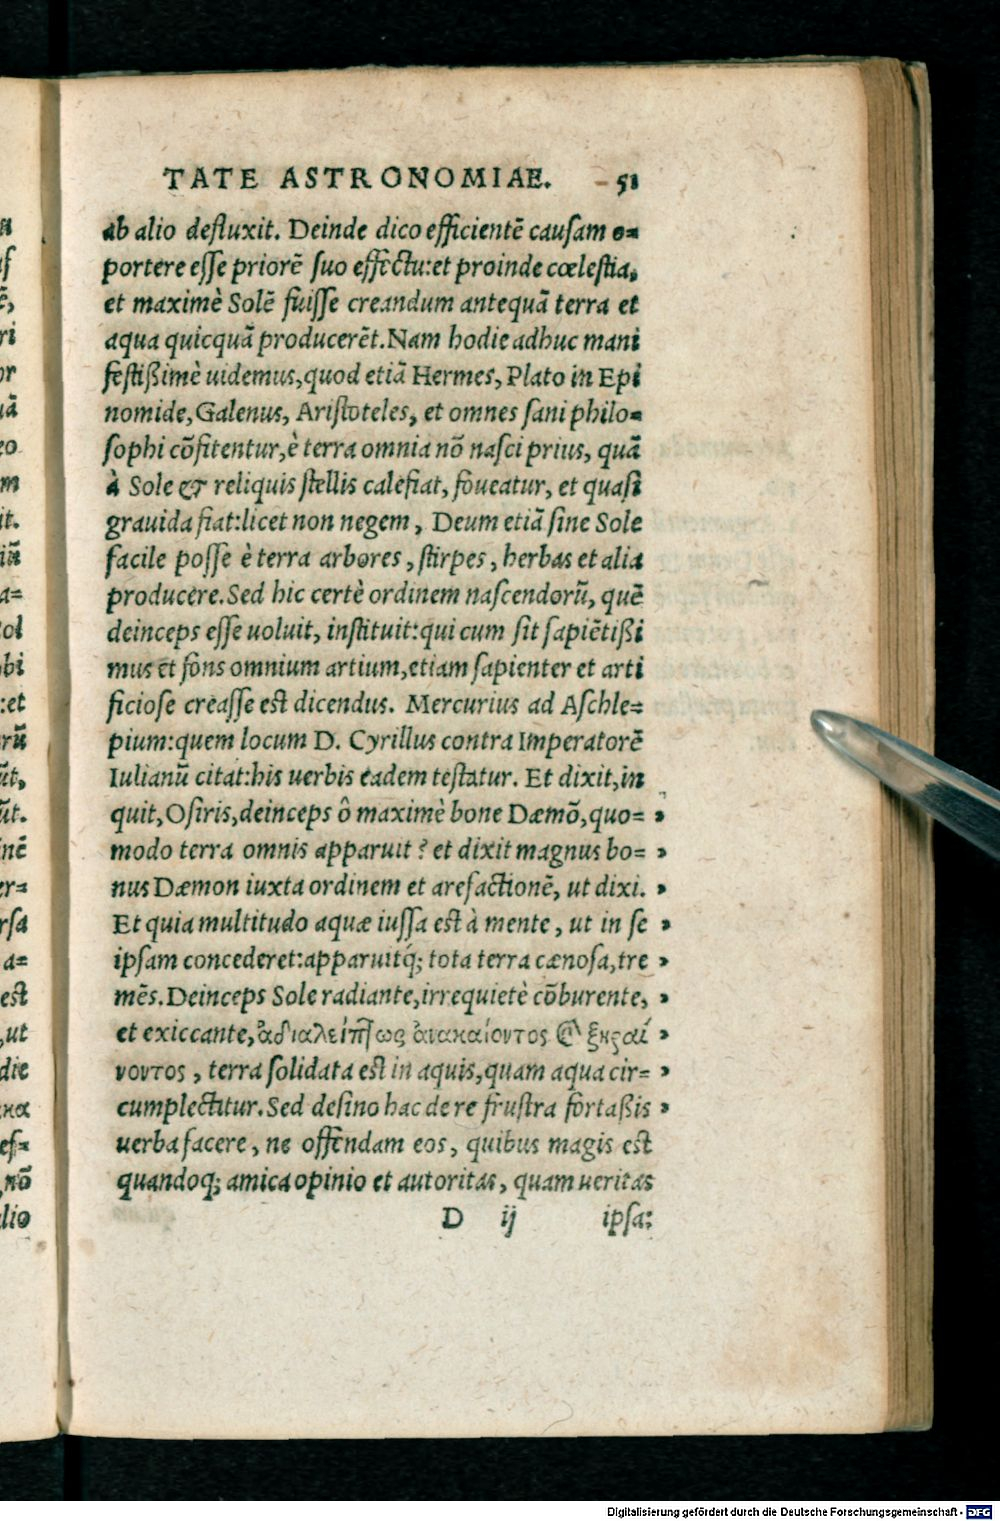 TATE ASTRONOMIAE. 51
ab alio defluxit. Deinde dico efficientẽ causam o=
portere esse priorẽ suo effectu:et proinde cœlestia,
et maximè Solẽ fuisse creandum antequã terra et
aqua quicquã producerẽt.Nam hodie adhuc mani
festißimè uidemus,quod etiã Hermes, Plato in Epi
nomide, Galenus, Aristoteles, et omnes sani philo=
sophi cõfitentur,è terra omnia nõ nasci prius, quã
à Sole & reliquis stellis calefiat, foueatur, et quasi
grauida fiat:licet non negem, Deum etiã sine Sole
facile posse è terra arbores, stirpes, herbas et alia
producere.Sed hic certè ordinem nascendorũ, quẽ
deinceps esse uoluit, instituit:qui cum sit sapiẽtißi
mus et fons omnium artium,etiam sapienter et arti
ficiose creasse est dicendus. Mercurius ad Aschle=
pium:quem locum D. Cyrillus contra Imperatorẽ
Iulianũ citat:his uerbis eadem testatur. Et dixit,in
quit, Osiris,deinceps ô maximè bone Dæmõ,quo= „
modo terra omnis apparuit? et dixit magnus bo= „
nus Dæmon iuxta ordinem et arefactionẽ, ut dixi. „
Et quia multitudo aquæ iussa est à mente, ut in se „
ipsam concederet:apparuitq́; tota terra cænosa,tre „
mẽs.Deinceps Sole radiante,irrequietè cõburente, „
et exiccante, ἀδιαλείπτως ἀνακαίοντος ϗ ξηραί „
νοντος, terra solidata est in aquis,quam aqua cir= „
cumplectitur.Sed desino hac de re frustra fortaßis „
uerba facere, ne offendam eos, quibus magis est
quandoq; amica opinio et autoritas, quam ueritas
D ij ipsa:
n
ſ
ẽ,
ri
or
uã
eo
m
it.
iũ
a=
ol
bi
:et
rũ
ũt,
ũt.
nẽ
er=
rsa
a=
est
,ut
die
κα
ef=
,nõ
alio
Digitalisierung gefördert durch die Deutsche Forschungsgemeinschaft - DFG